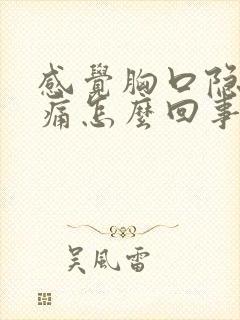 感覺胸口隐
痛怎麼回事
吴風雷